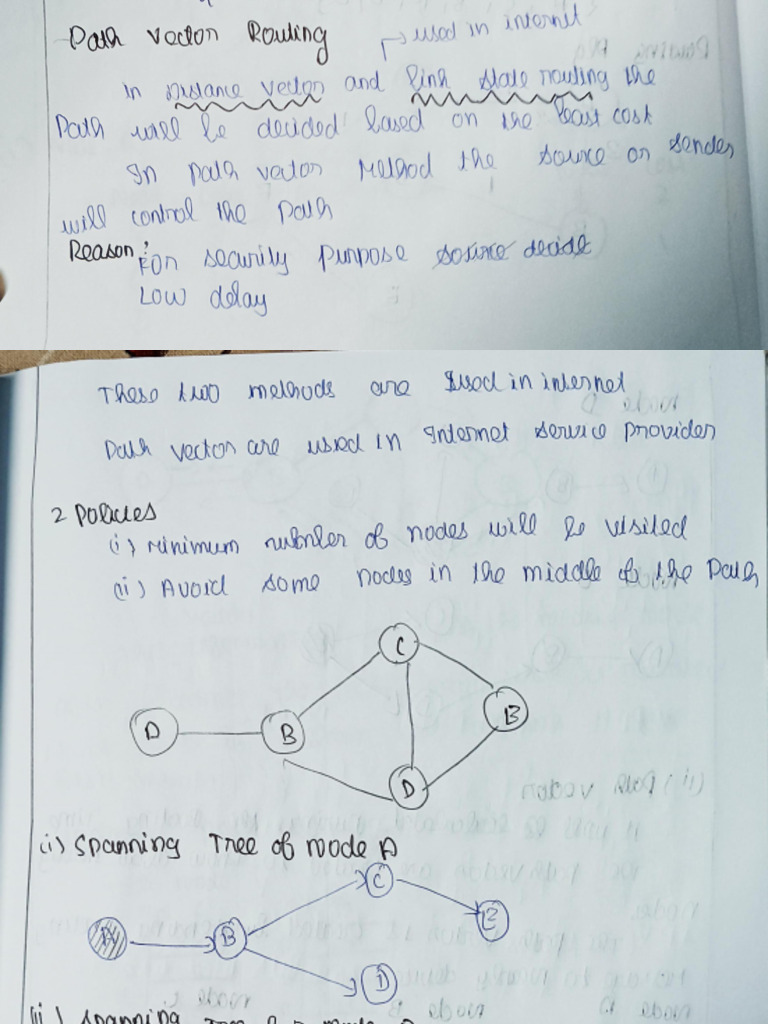 Path vector Routing
used in internet
in Distance vector and link state routing the
Path will be decided based on the least cost
In path vector Method the source or sender
will control the path
Reason:
For security purpose source decide
Low delay
These two methods are used in internet
Path vector are used in Internet service provider
2 Policies
(i) Minimum number of nodes will be visited
(ii) Avoid some nodes in the middle of the path
C
A B
D
(i) Spanning Tree of node A
C
A B E
D
(ii) Spanning Tree of node